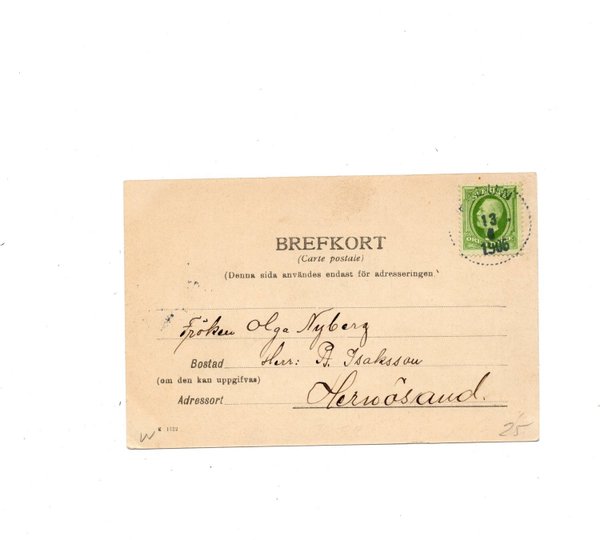 13
1905
BREFKORT
(Carte postale)
(Denna sida användes endast för adresseringen.)
Fröken Olga Nyberg
Bostad Herr: P. Isaksson
(om den kan uppgifvas)
Adressort Hernösand.
K 1122
25